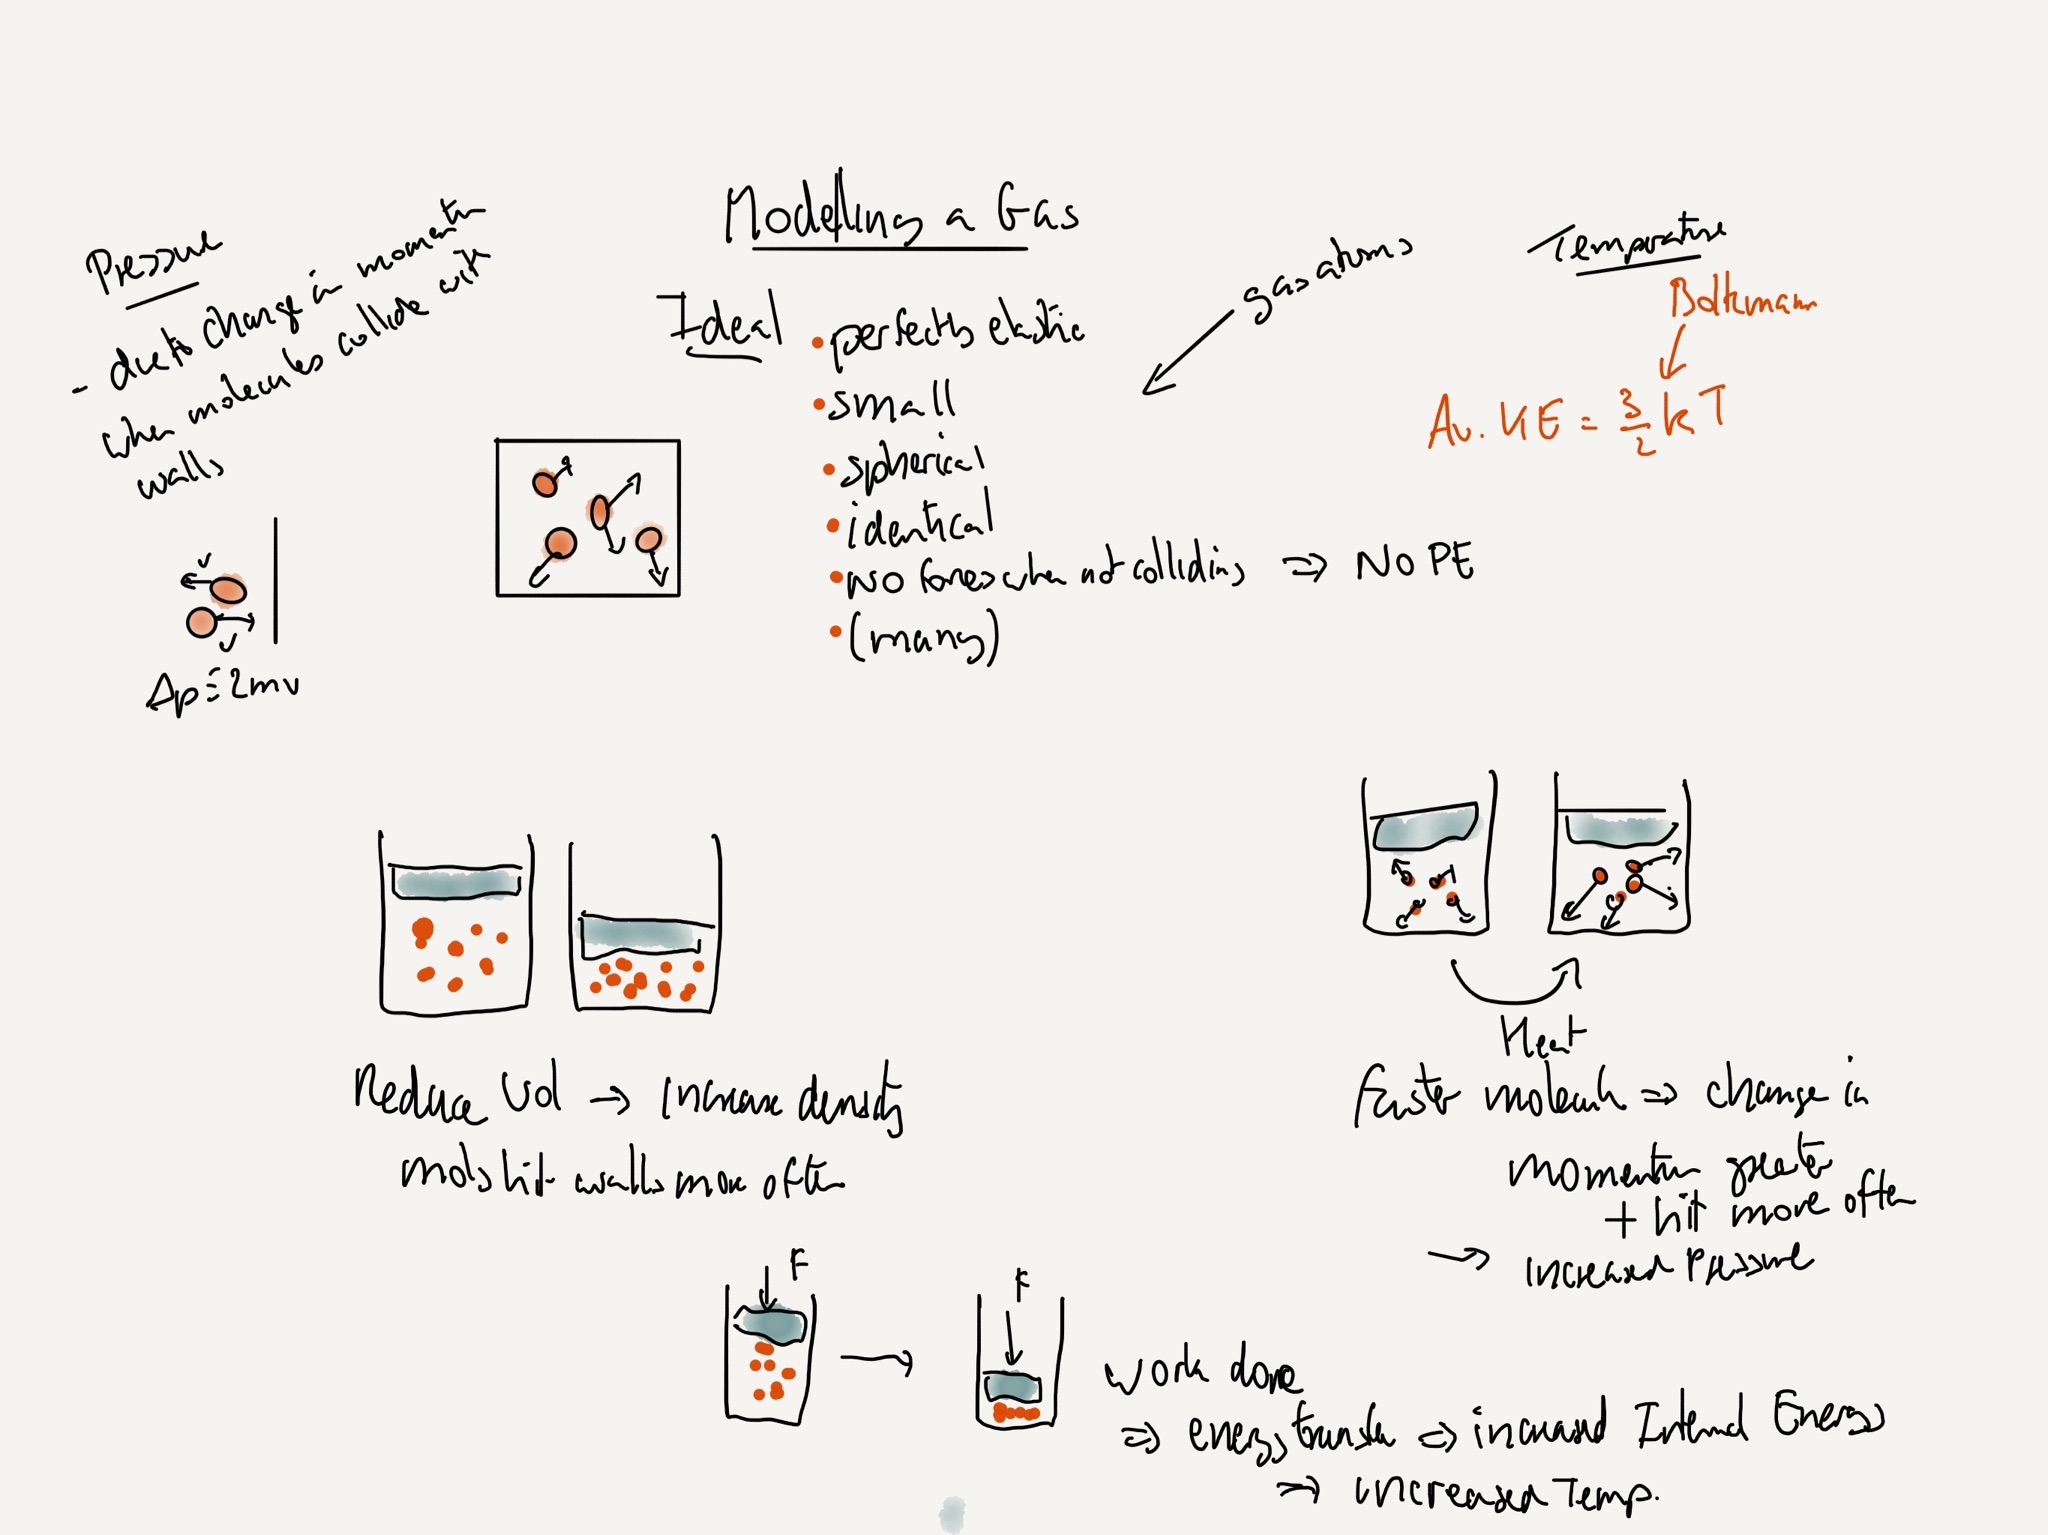 Modelling a Gas
Pressure
- due to change in momentum
when molecules collide with
walls
v
v
Δp = 2mv
Ideal
• perfectly elastic
• small
• spherical
• identical
• No forces when not colliding ⇒ NO PE
• (many)
gas atoms
Temperature
Boltzmann
Av. KE = 3/2 kT
Reduce Vol → increase density
mols hit walls more often
Heat
Faster molecules ⇒ change in
momentum greater
+ hit more often
→ increased Pressure
F
F
work done
⇒ energy transfer ⇒ increased Internal Energy
⇒ increased Temp.